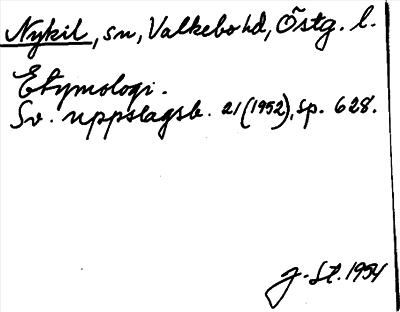 Nykil, sn, Valkebo hd, Östg. l.
Etymologi.
Sv. uppslagsb. 21 (1952), sp. 628.
J. St. 1954